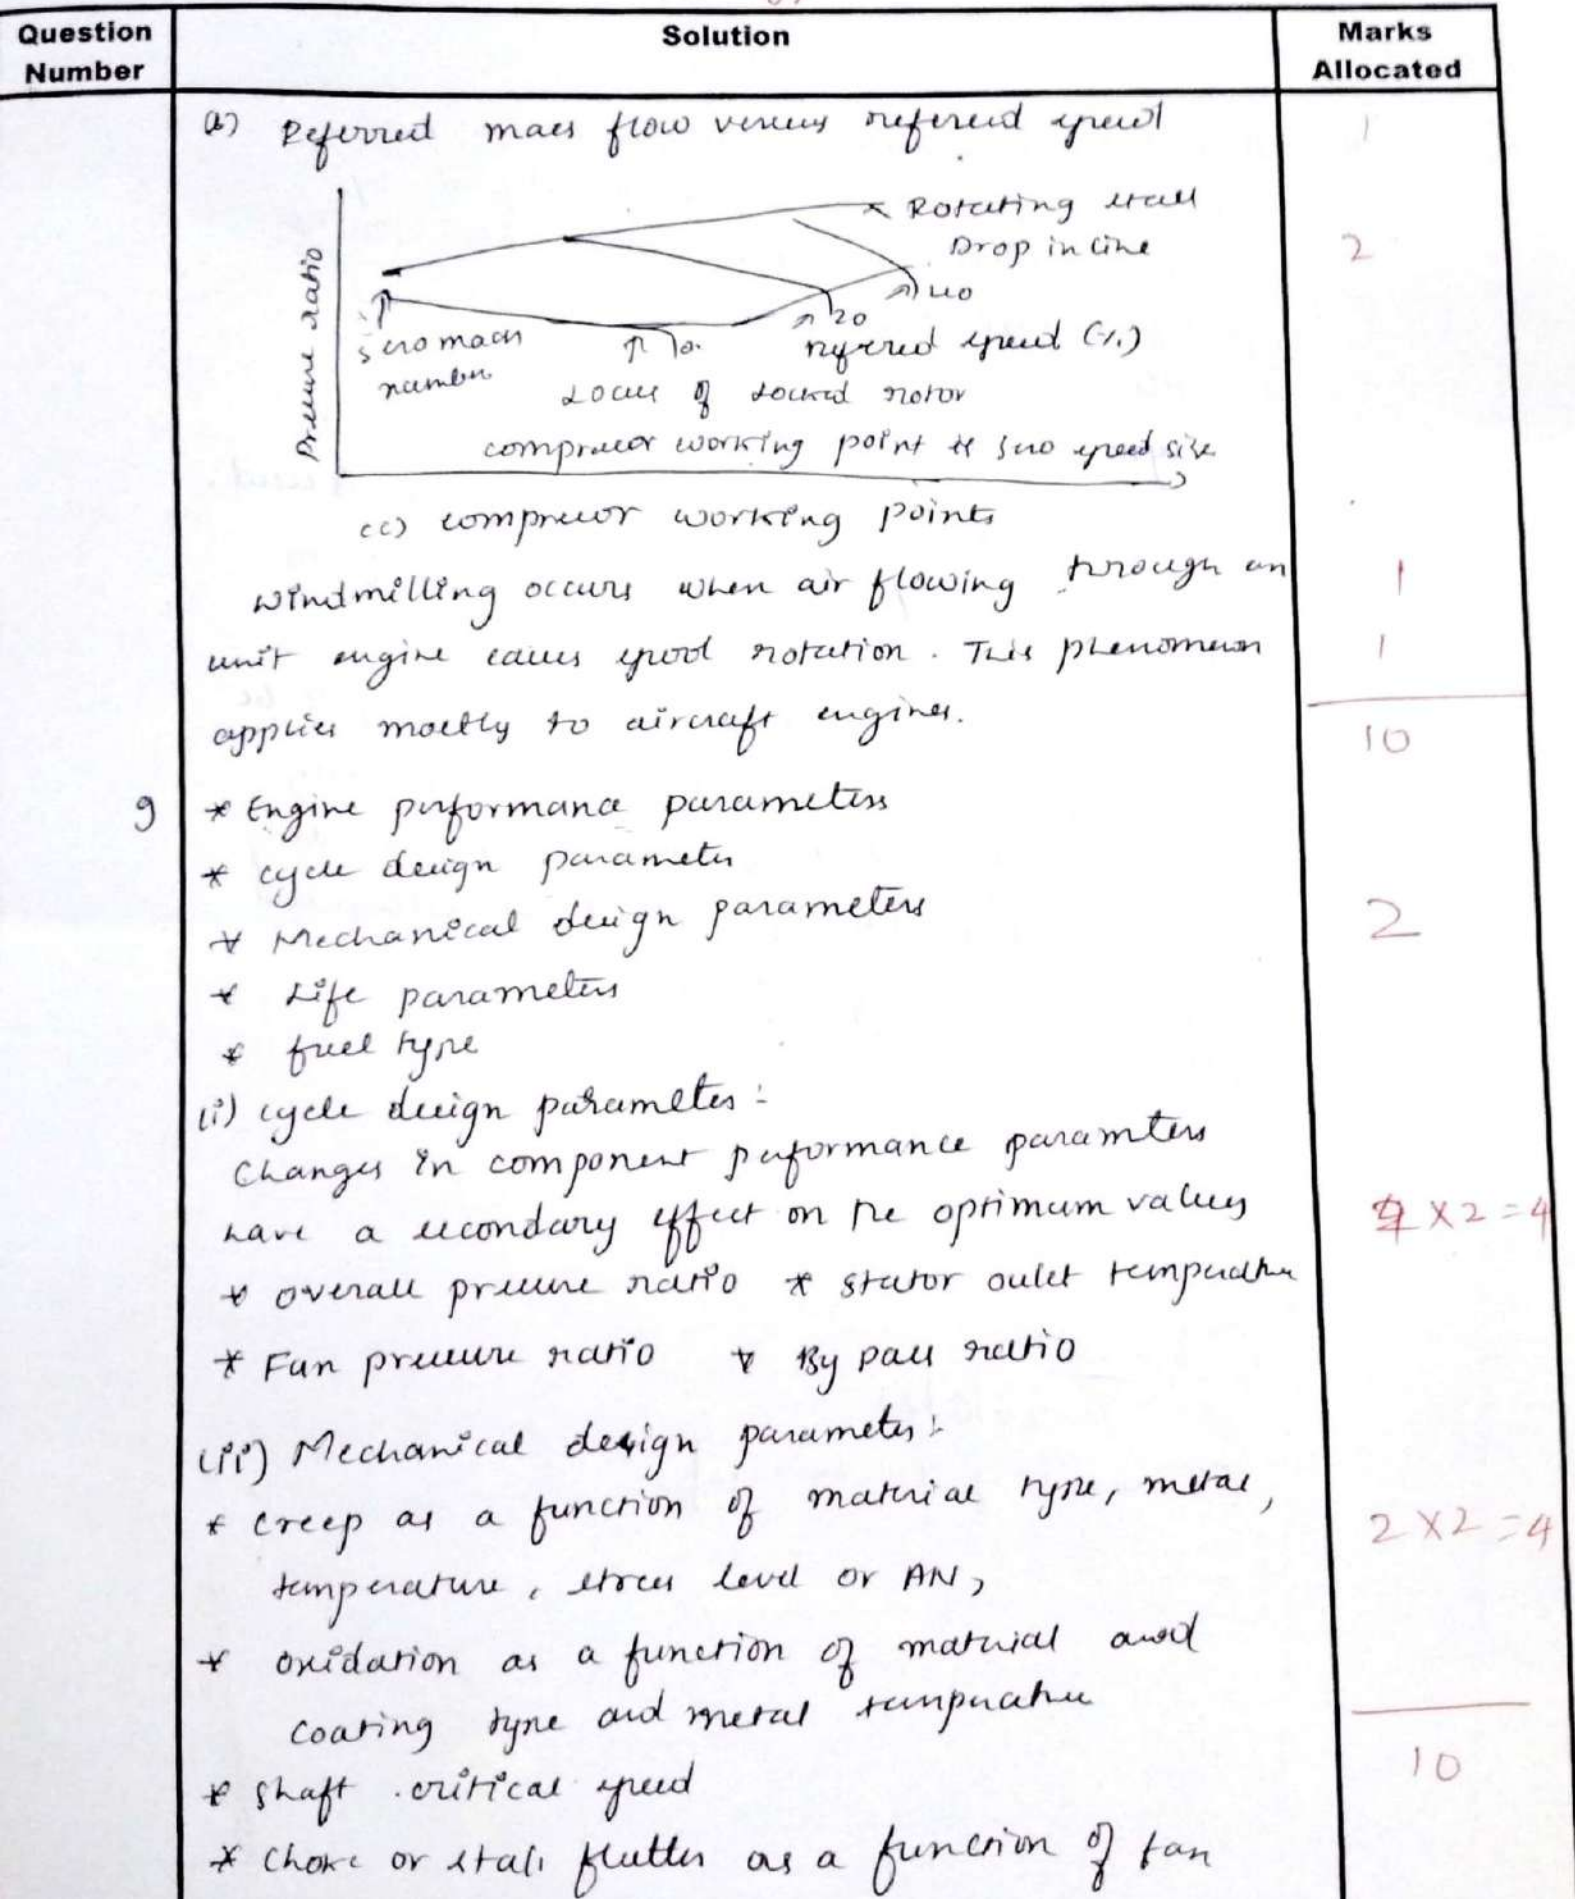 Question Number
Solution
Marks Allocated
(b) Referred mass flow versus referred speed
1
Pressure ratio
Rotating stall
Drop in line
2
40
20
Zero mach
number
10
referred speed (%)
Locus of Locked rotor
compressor working point is zero speed size
(c) compressor working points
windmilling occurs when air flowing through an
1
unit engine causes spool rotation. This phenomenon
1
applies mostly to aircraft engines.
10
9
* Engine performance parameters
* cycle design parameters
* Mechanical design parameters
2
* Life parameters
* fuel type
(i) cycle design parameters:
Changes in component performance parameters
have a secondary effect on the optimum values
× 2 = 4
* overall pressure ratio * stator oulet temperature
* Fan pressure ratio * By pass ratio
(ii) Mechanical design parameters:
* creep as a function of material type, metal,
2 × 2 = 4
temperature, stress level or AN,
* oxidation as a function of material and
coating type and metal temperature
10
* shaft critical speed
* Choke or stall flutter as a function of fan